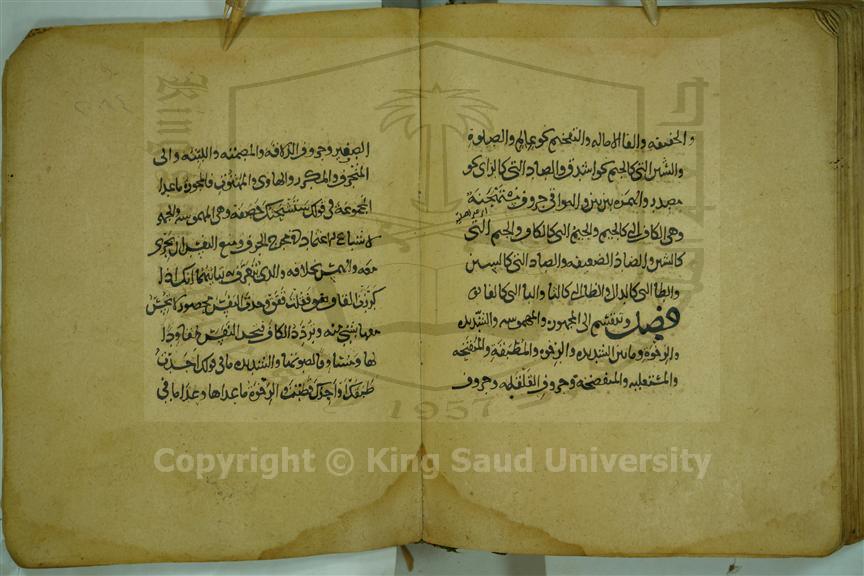 والخفيفة والفا الاماله والتفخيم نحو عالم والصلوة
والشين التي كالجيم نحو اشدق والصاد التي كالزاي نحو
مصدر والهمزة بين بين والبواقي حروف مستهجنة
وهي الكاف التي كالجيم والجيم التي كالكاف والجيم التي
كالشين والضاد الضعيفه والصاد التي كالسين
والطا التي كالتا والظا التي كالثا والبا التي كالفا
فصل وتنقسم الى المجهورة والمهموسه والشديده
والرخوة وما بين الشديده والرخوه والمطبقة والمنفتحه
والمستعليه والمنخفضة وحروف القلقله وحروف
الصفير وحروف الذلاقه والمصمته واللينه والى
المنحرف والمكرر والهاوي والمهتوت فالمجهورة ماعدا
المجموعة في قولك ستشحثك خصفه وهي المهموسه والجهر
اشباع الاعتماد في مخرج الحرف ومنع النفس ان يجري
معه والهمس بخلافه والذي يتعرف به تباينهما انك اذا
كررت القاف فقلت ققق وجدت النفس محصورا لا تحس
معها بشي منه وتردد الكاف فتجد النفس مقاودا
لها ومساوقا لصوتها والشديده ما في قولك اجدت
طبقك او اجدك قطبت والرخوة ماعداها وعدا ما في
Copyright © King Saud University
1957